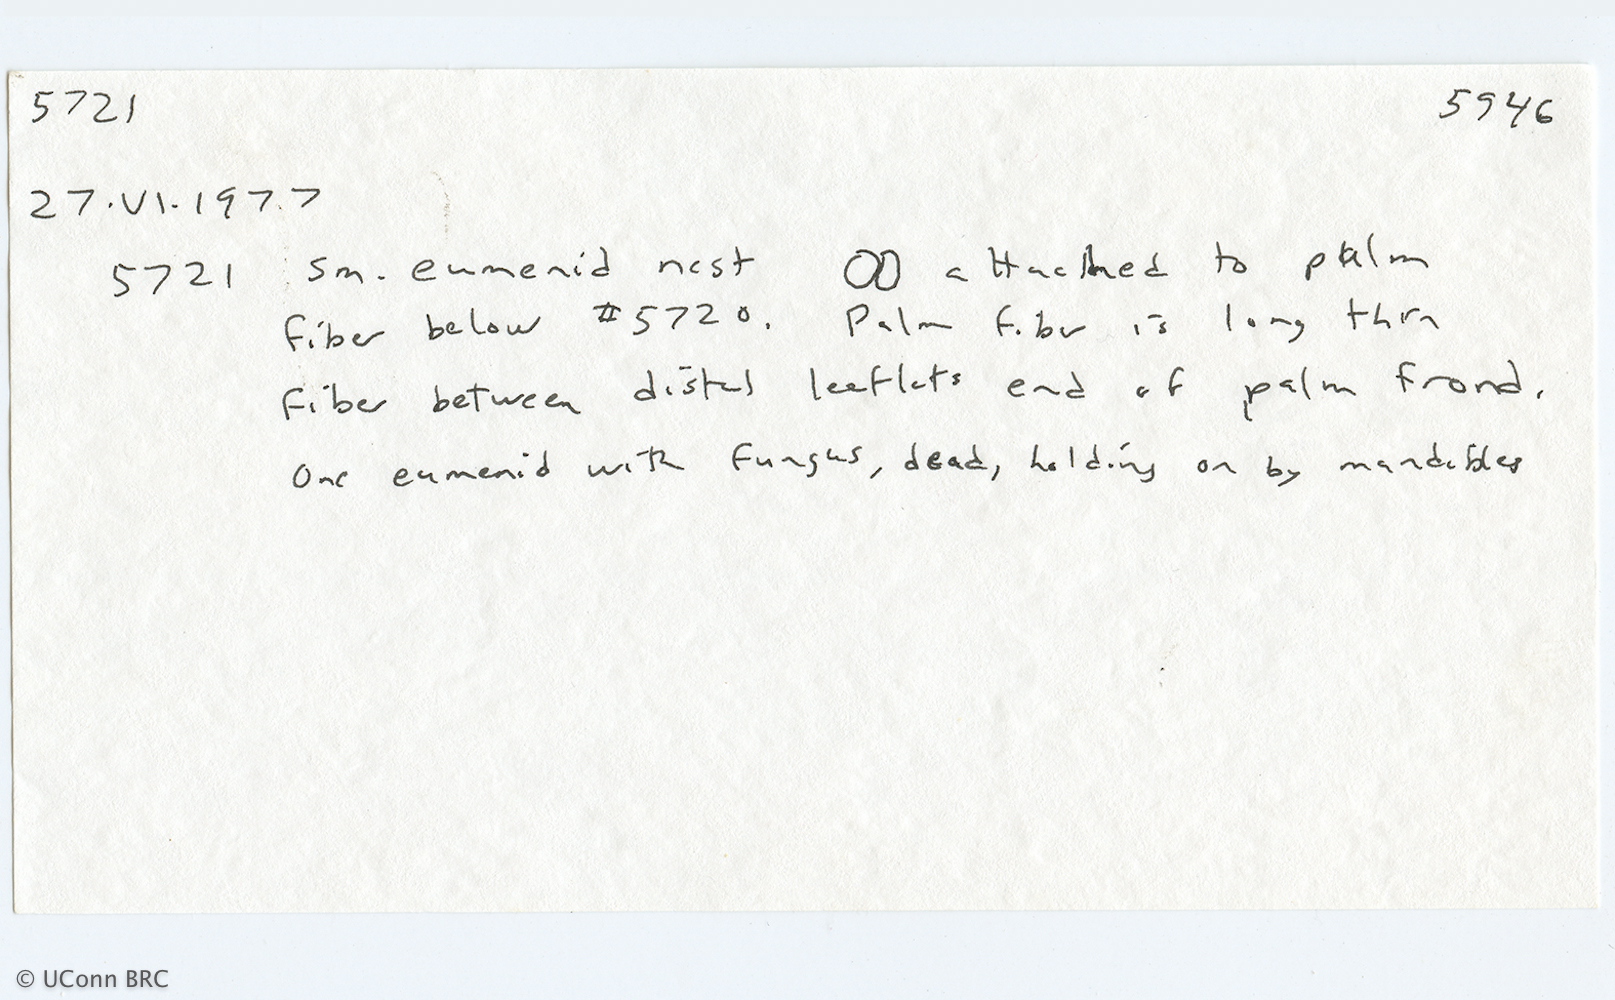 5721 5946
27.VI.1977
5721 Sm. eumenid nest OO attached to palm
fiber below #5720. Palm fiber is long thin
fiber between distal leaflets end of palm frond.
One eumenid with fungus, dead, holding on by mandibles
© UConn BRC